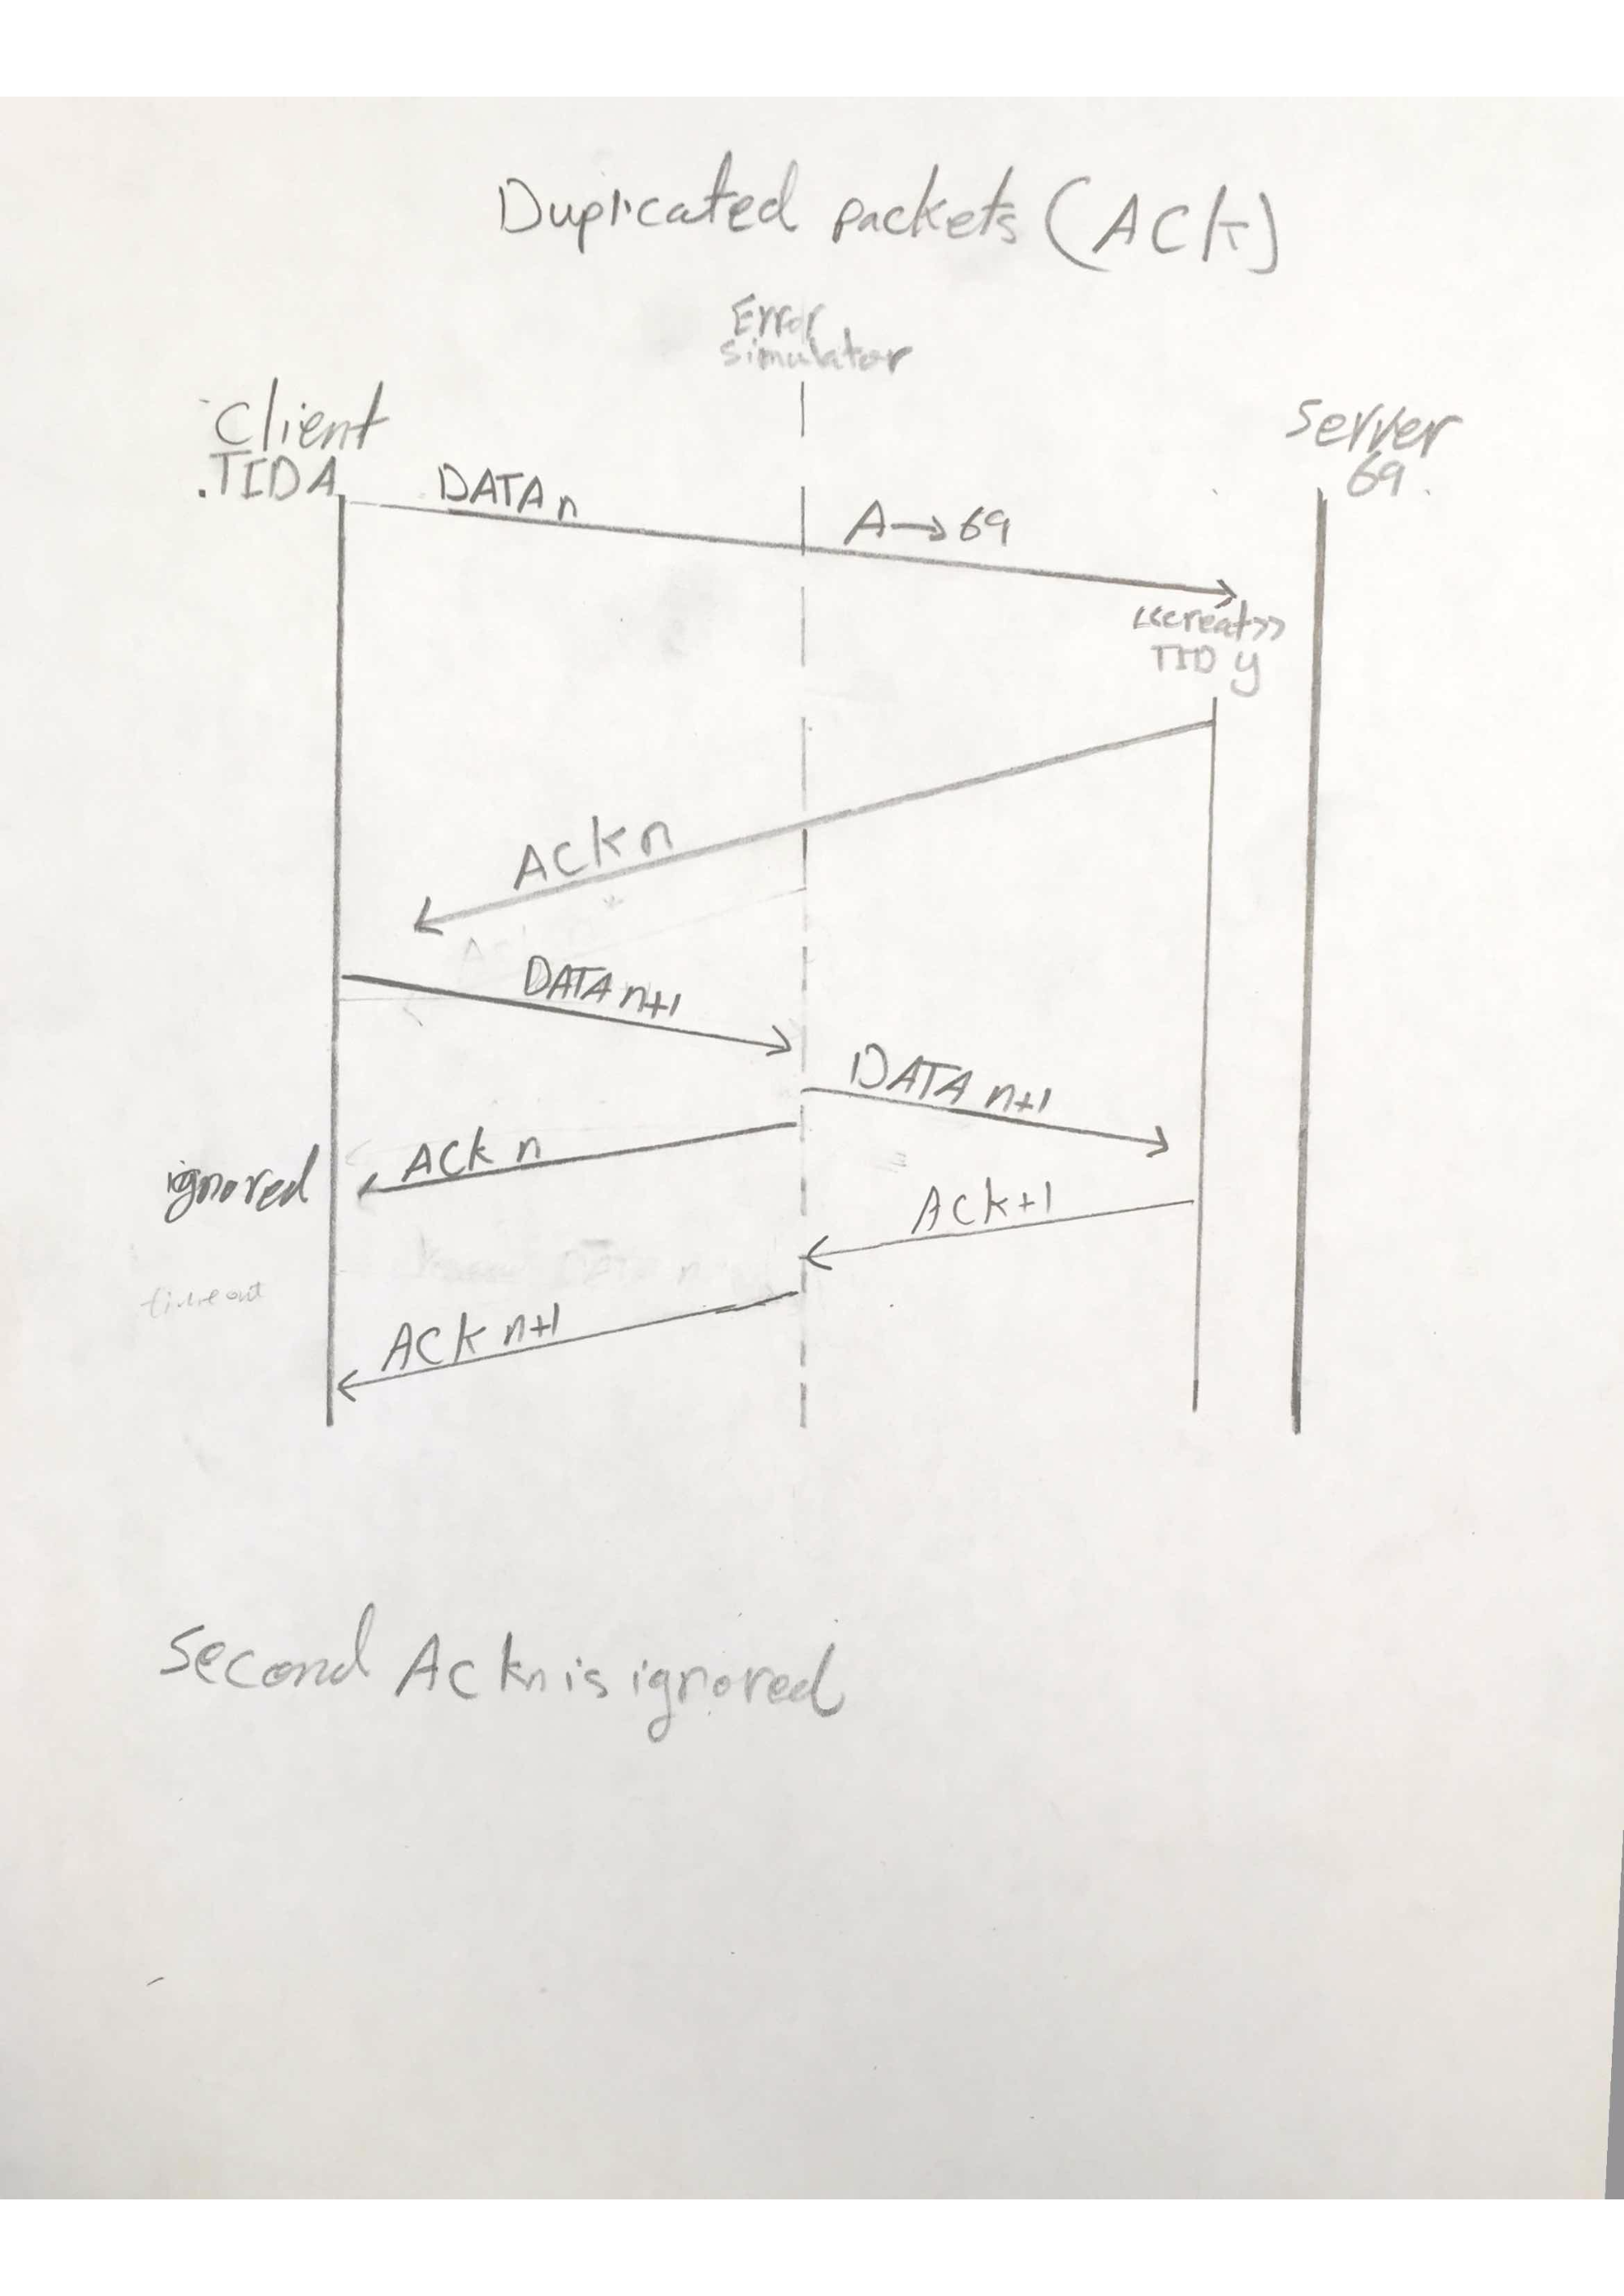 Duplicated packets (ACK)
Error
simulator
Client
.TID A
Server
69
DATA n
A→69
<<creat>>
TID y
ACK n
DATA n+1
DATA n+1
ACK n
ignored
ACK+1
timeout
ACK n+1
Second ACK n is ignored